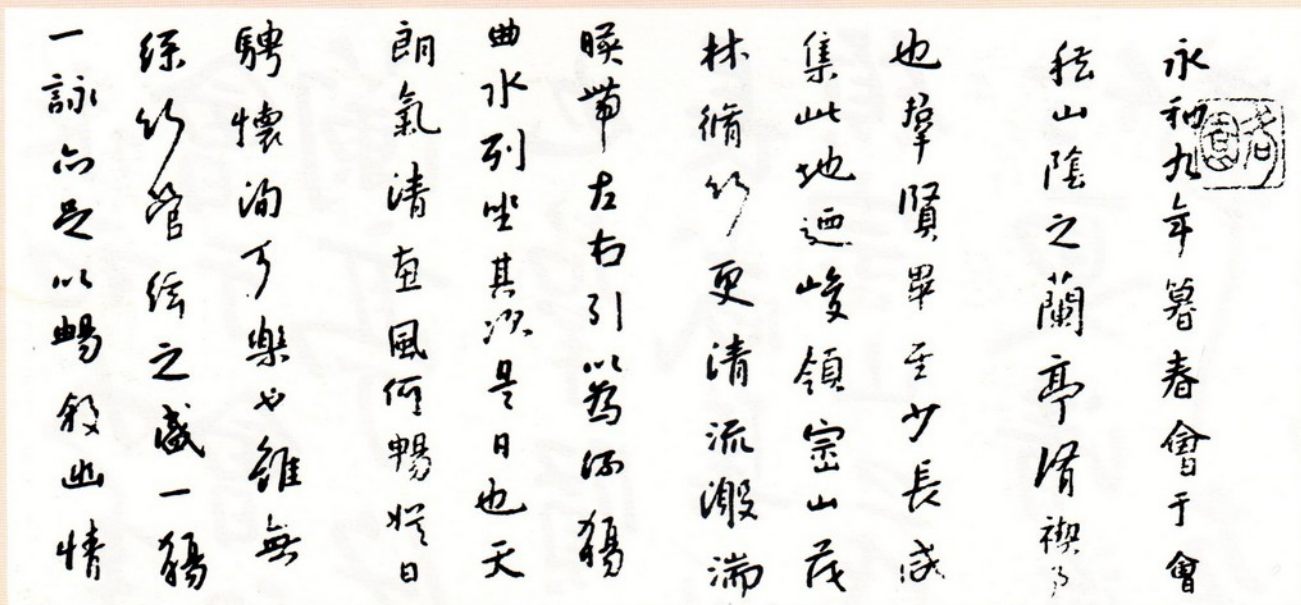 永和九年暮春會于會
稽山陰之蘭亭脩禊事
也羣賢畢至少長咸
集此地迺峻領崇山茂
林脩竹更清流激湍
暎帶左右引以為流觴
曲水列坐其次是日也天
朗氣清惠風何暢娛目
騁懷洵可樂也雖無
絲竹管絃之盛一觴
一詠亦足以暢敘幽情